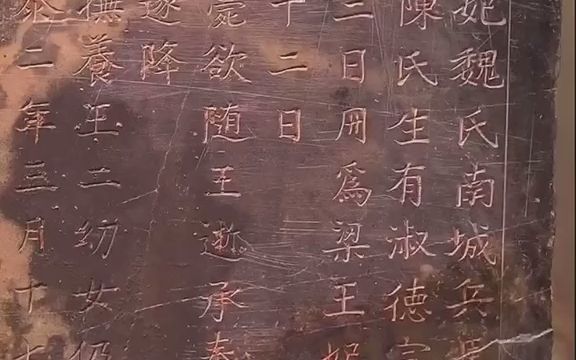 妃魏氏南城兵馬
陳氏生有淑德宣
三日冊爲梁王妃
十二日
薨欲随王逝承奉
遂降
撫養王二幼女仍
泰二年三月十七